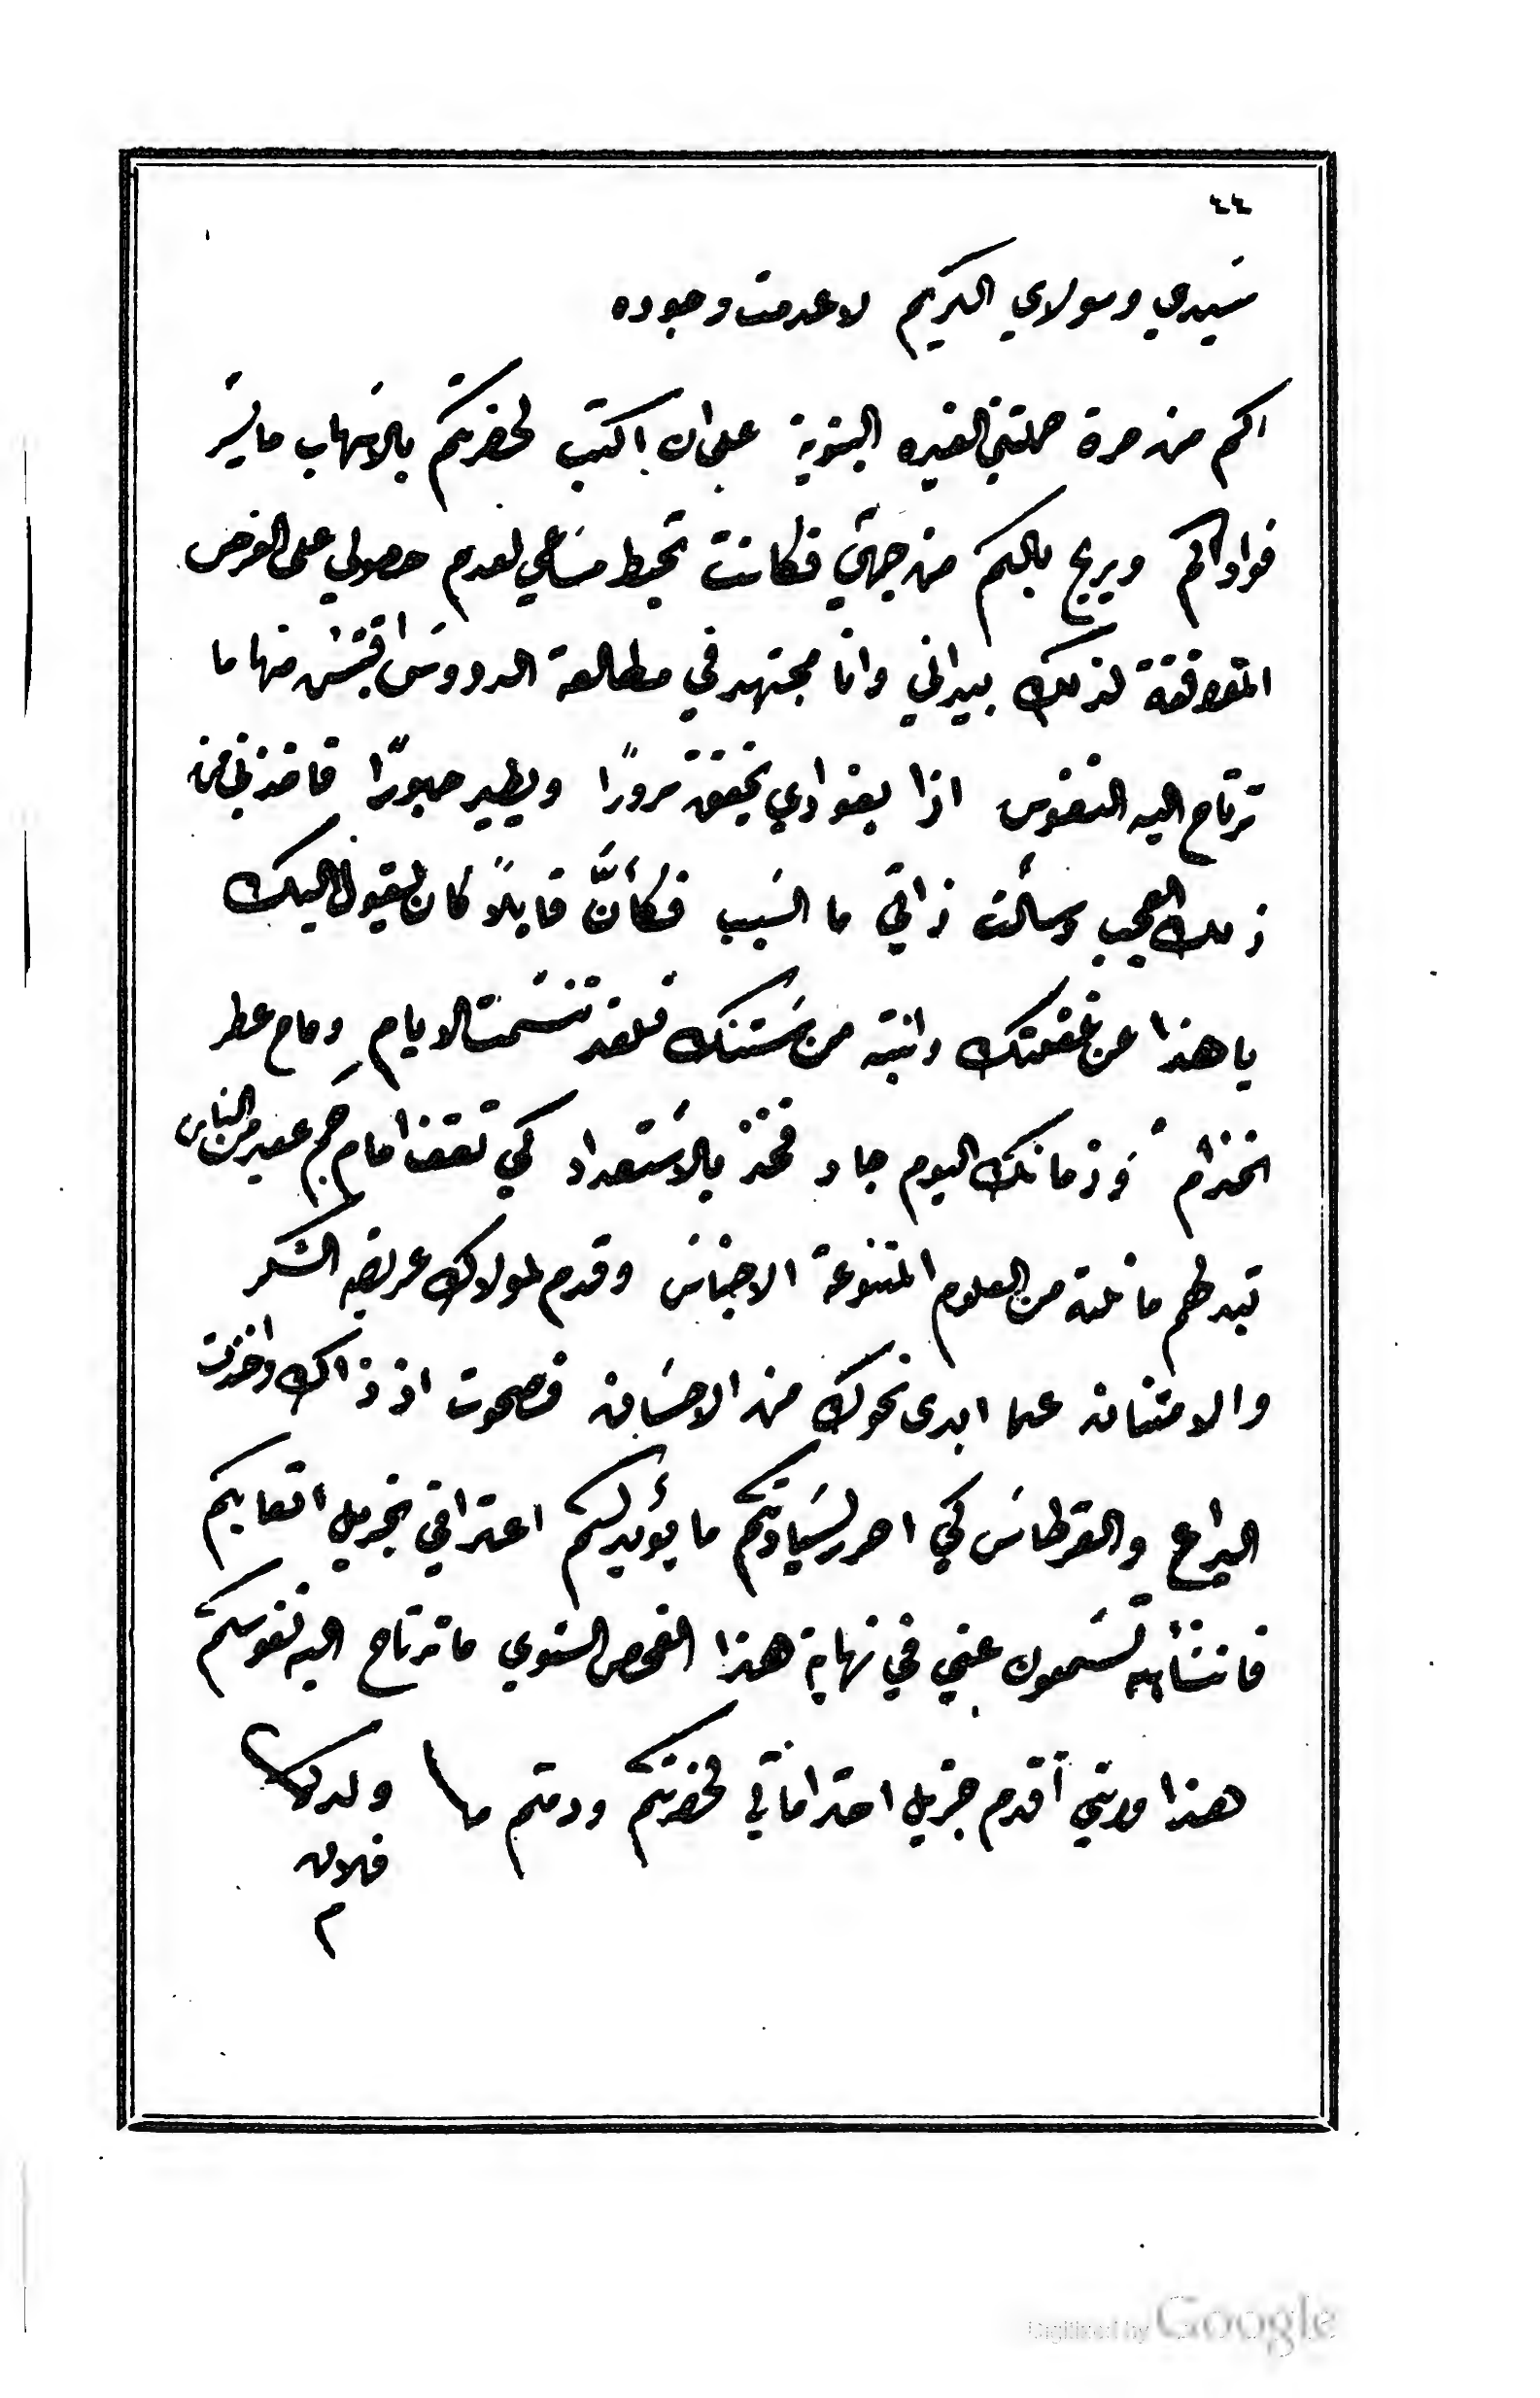 ٤٤
سيدي ومولاي الكريم لا عدمت وجوده
اكم من مرة حملتني الغيره البنوية على ان اكتب لحضرتكم بالاسهاب ما يسر
فوادكم ويريح بالكم من جهتي فكانت تحبط مساعي لعدم حصولي على الفرص
الموافقة لذلك بيد اني وانا مجتهد في مطالعة الدروس اقتبس منها ما
ترتاح اليه النفوس اذا بفوادي يخفق سرورًا ويطير حبورًا فاخذني من
ذلك العجب وسألت ذاتي ما السبب فكأنَّ قايلاً كان يقول اليك
يا هذا عن غفلتك وانتبه من سنتك فلقد تنسمت الايام وفاح عطر
الخزام وزمانك اليوم جاد فخذ بالاستعداد كي تقف امام جم غفير من الناس
تبد لهم ما نلته من العلوم المتنوعة الاجناس وقدم لمولاك عريضه الشكر
والامتنان عما ابدى نحوك من الاحسان فصحوت اذ ذاك واخذت
اليراع والقرطاس كي احرر لسيادتكم ما يؤيد لكم اعترافي بجزيل اتعابكم
فانشاءالله تسمعون عني في نهاية هذا الفحص السنوي ما ترتاح اليه نفوسكم
هذا وانني أقدم جزيل احتراماتي لحضرتكم ودمتم ولدكم
فلان
م
Digitized by Google